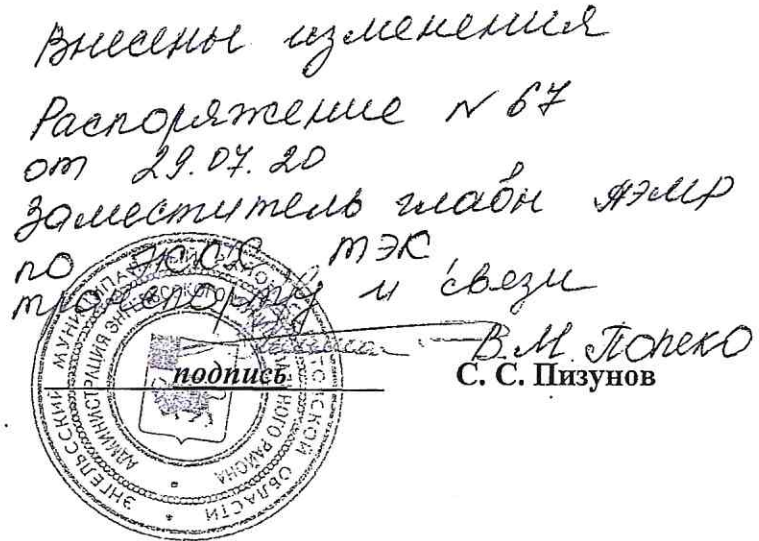 Внесены изменения
Распоряжение N 67
от 29.07.20
Заместитель главы АЭМР
по ЖКХ, ТЭК
транспорту и связи
В.М. Попеко
подпись С. С. Пизунов
ЭНГЕЛЬССКИЙ МУНИЦИПАЛЬНЫЙ РАЙОН САРАТОВСКОЙ ОБЛАСТИ *
АДМИНИСТРАЦИЯ ЭНГЕЛЬССКОГО МУНИЦИПАЛЬНОГО РАЙОНА